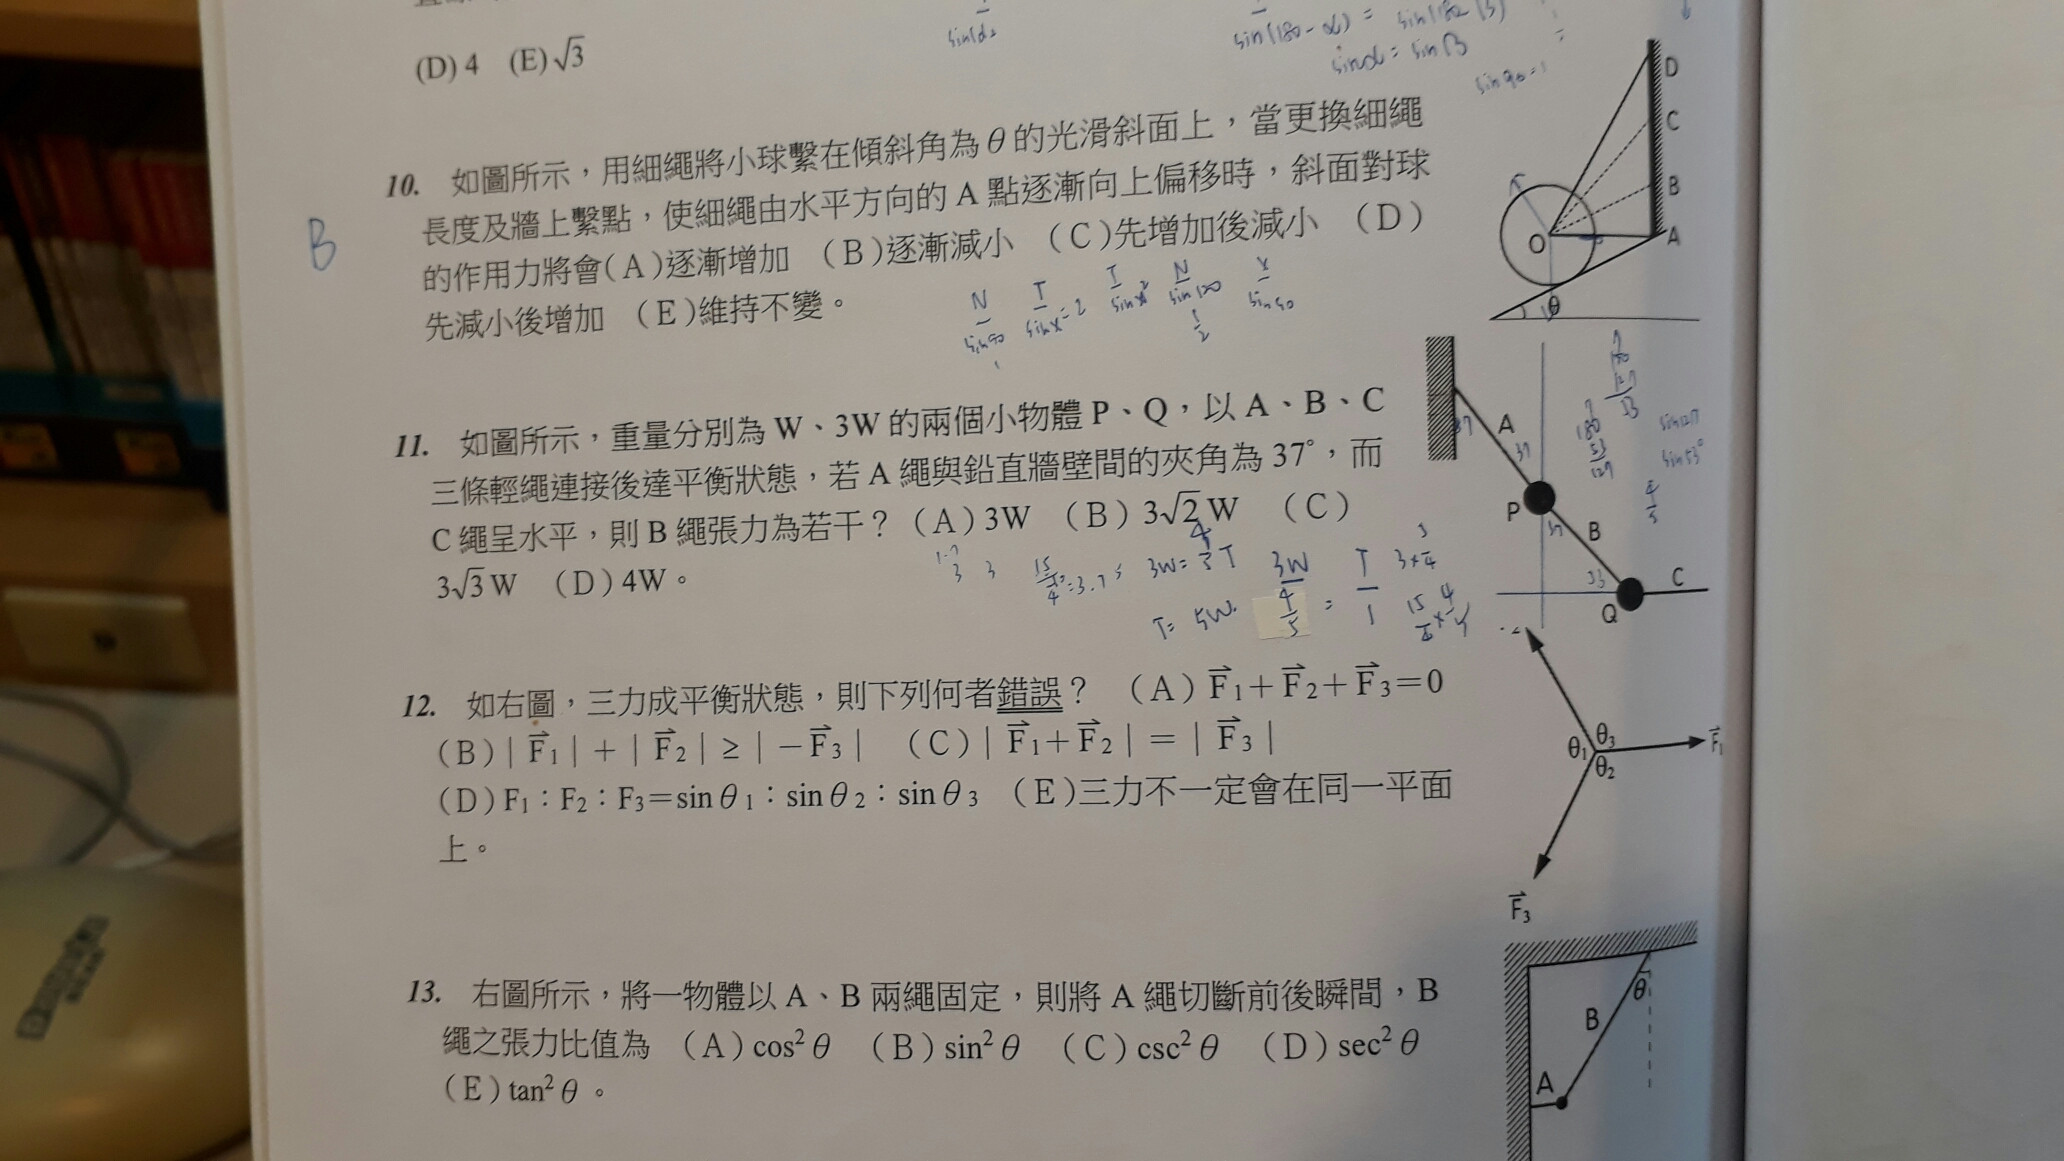 (D) 4 (E)√3
sin(180-α) = sin(180 β)
sinα = sinβ
sin90=1
10. 如圖所示，用細繩將小球繫在傾斜角為θ的光滑斜面上，當更換細繩
長度及牆上繫點，使細繩由水平方向的 A 點逐漸向上偏移時，斜面對球
的作用力將會(A)逐漸增加 (B)逐漸減小 (C)先增加後減小 (D)
先減小後增加 (E)維持不變。
B
D
C
B
A
O
θ
N
sin90
11. 如圖所示，重量分別為 W、3W 的兩個小物體 P、Q，以 A、B、C
三條輕繩連接後達平衡狀態，若 A 繩與鉛直牆壁間的夾角為 37°，而
C 繩呈水平，則 B 繩張力為若干？ (A)3W (B)3√2W (C)
3√3W (D)4W。
3W= 4/5 T
T= 5W.
3W
4/5
=
T
1
sin53°
4/5
A
37
P
B
C
Q
12. 如右圖，三力成平衡狀態，則下列何者錯誤？ (A) F⃗1+F⃗2+F⃗3=0
(B)| F⃗1|+| F⃗2|≥|−F⃗3| (C)| F⃗1+F⃗2|=| F⃗3|
(D)F1：F2：F3=sinθ1：sinθ2：sinθ3 (E)三力不一定會在同一平面
上。
θ1
θ3
θ2
F⃗1
F⃗3
13. 右圖所示，將一物體以 A、B 兩繩固定，則將 A 繩切斷前後瞬間，B
繩之張力比值為 (A)cos²θ (B)sin²θ (C)csc²θ (D)sec²θ
(E)tan²θ。
θ
B
A